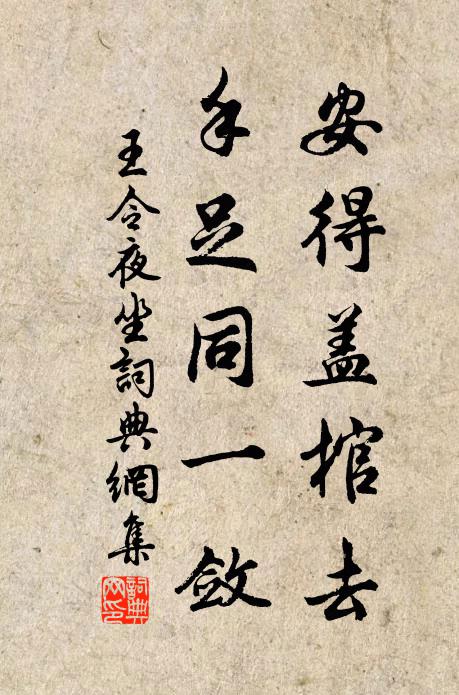 安得盖棺去
手足同一敛
王令夜坐詞典網集
詞典网印